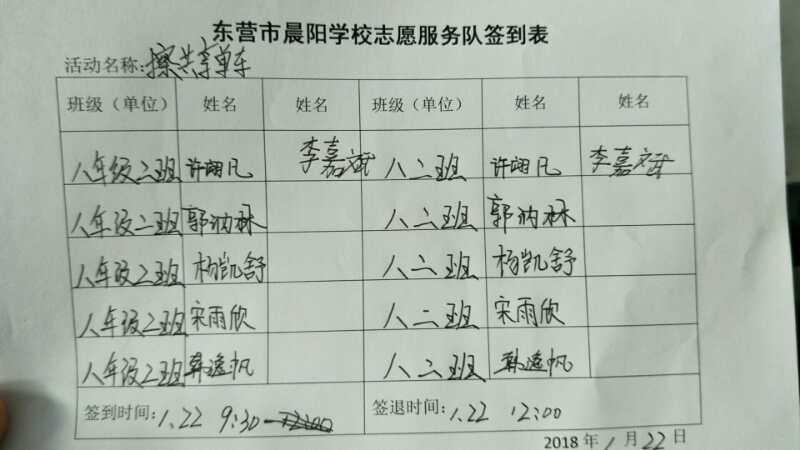 东营市晨阳学校志愿服务队签到表
活动名称:擦共享单车
班级（单位） 姓名 姓名 班级（单位） 姓名 姓名
八年级二班 许翊凡 李嘉斌 八二班 许翊凡 李嘉斌
八年级二班 郭汭林 八二班 郭汭林
八年级二班 杨凯舒 八二班 杨凯舒
八年级二班 宋雨欣 八二班 宋雨欣
八年级二班 韩逸帆 八二班 韩逸帆
签到时间: 1.22 9:30 签退时间: 1.22 12:00
2018 年 1 月 22 日